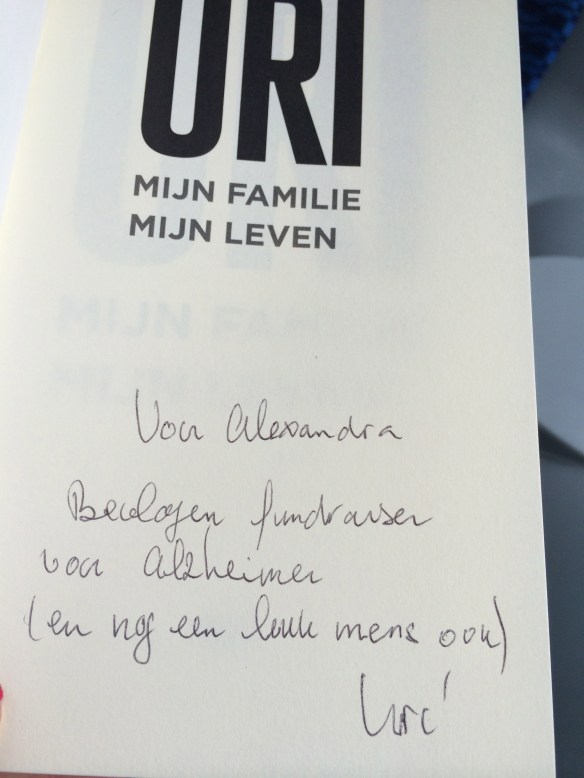 URI
MIJN FAMILIE
MIJN LEVEN
Voor Alexandra
Bevlogen fundraiser
voor Alzheimer
(en nog een leuk mens ook)
Uri